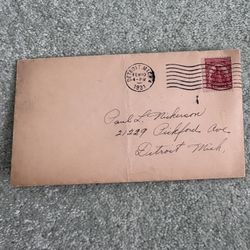 DETROIT, MICH.
FEB 10
4-PM
1931
Paul L. Nickerson
21229 Pickford Ave.
Detroit Mich.